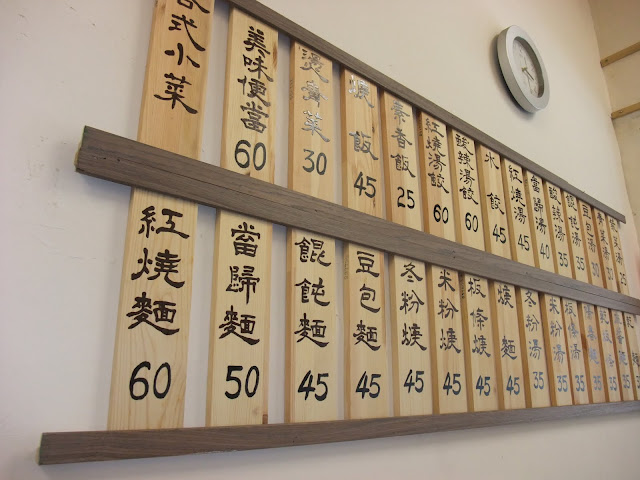 各式小菜
美味便當 60
燙青菜 30
焿飯 45
素香飯 25
紅燒湯餃 60
酸辣湯餃 60
水餃 45
紅燒湯 45
當歸湯 40
酸辣湯 35
餛飩湯 35
豆包湯 30
紅燒麵 60
當歸麵 50
餛飩麵 45
豆包麵 45
冬粉焿 45
米粉焿 45
板條焿 45
焿麵 45
冬粉湯 35
米粉湯 35
板條湯 35